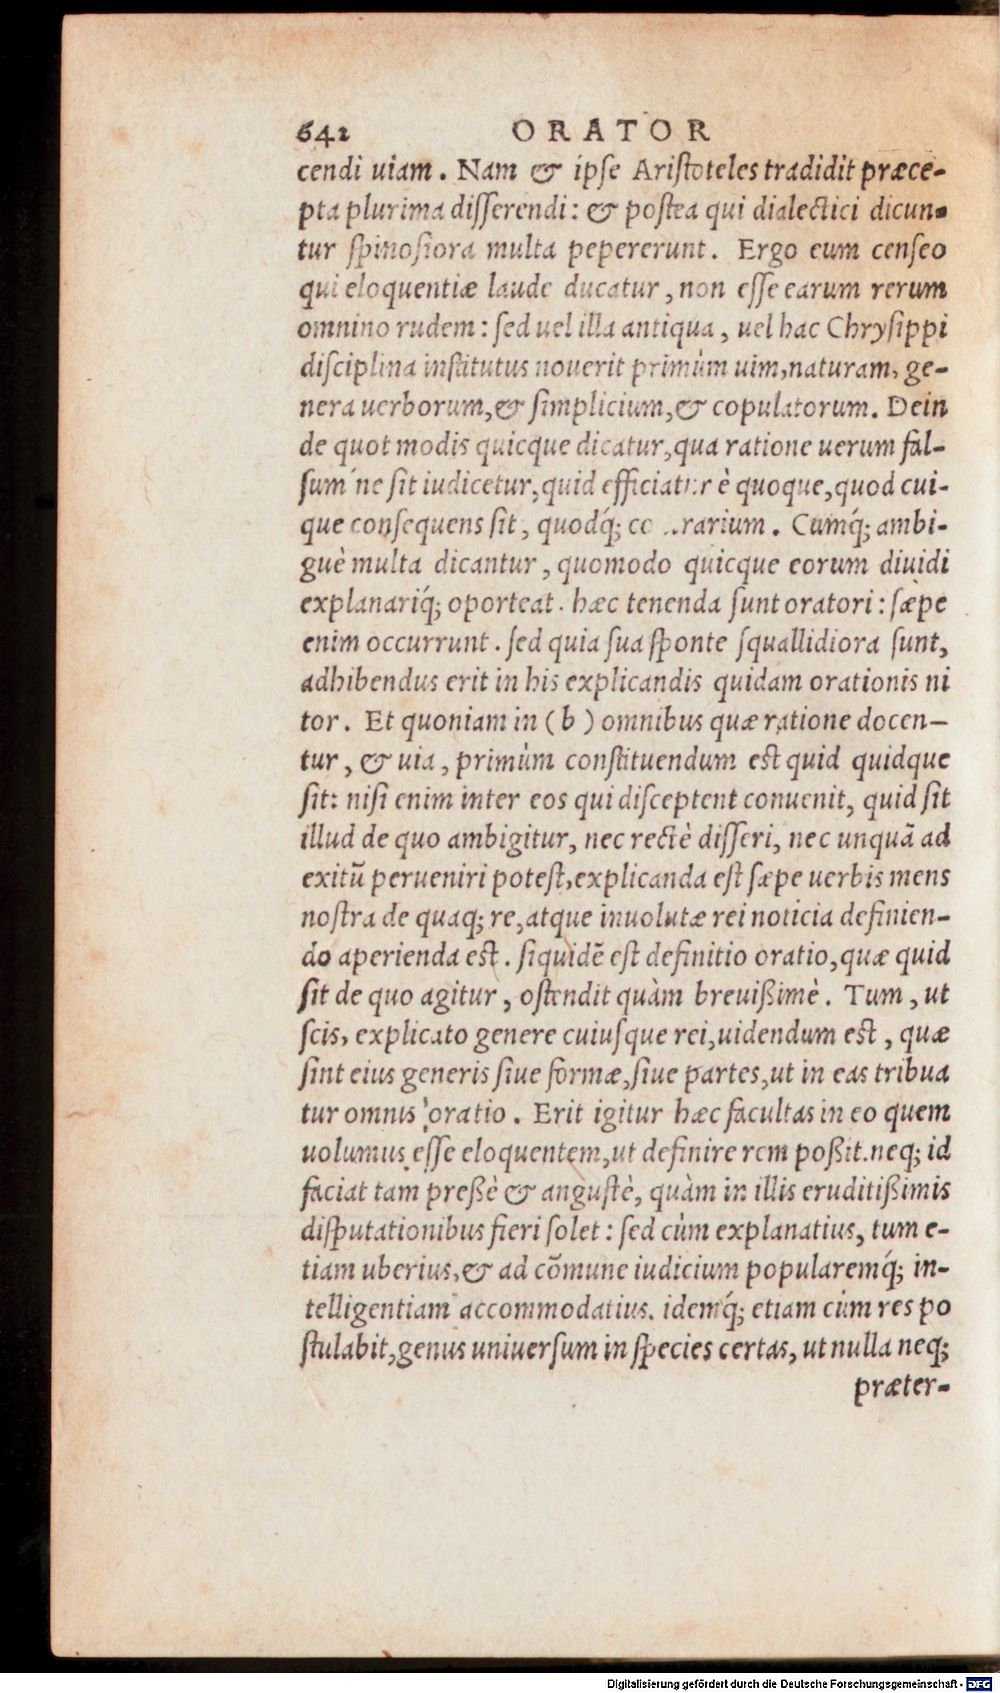 642 ORATOR
cendi uiam. Nam & ipse Aristoteles tradidit præce-
pta plurima disserendi: & postea qui dialectici dicun-
tur spinosiora multa pepererunt. Ergo eum censeo
qui eloquentiæ laude ducatur, non esse earum rerum
omnino rudem: sed uel illa antiqua, uel hac Chrysippi
disciplina institutus nouerit primùm uim, naturam, ge-
nera uerborum, & simplicium, & copulatorum. Dein
de quot modis quicque dicatur, qua ratione uerum fal-
sum ́ne sit iudicetur, quid efficiatur è quoque, quod cui-
que consequens sit, quodq́; Cumq́; ambi-
guè multa dicantur, quomodo quicque eorum diuidi
explanariq́; oporteat. hæc tenenda sunt oratori: sæpe
enim occurrunt. sed quia sua sponte squallidiora sunt,
adhibendus erit in his explicandis quidam orationis ni
tor. Et quoniam in (b) omnibus quæ ratione docen-
tur, & uia, primùm constituendum est quid quidque
sit: nisi enim inter eos qui disceptent conuenit, quid sit
illud de quo ambigitur, nec rectè disseri, nec unquã ad
exitũ perueniri potest, explicanda est sæpe uerbis mens
nostra de quaq; re, atque inuolutæ rei noticia definien-
do aperienda est. siquidẽ est definitio oratio, quæ quid
sit de quo agitur, ostendit quàm breuißimè. Tum, ut
scis, explicato genere cuiusque rei, uidendum est, quæ
sint eius generis siue formæ, siue partes, ut in eas tribua
tur omnis oratio. Erit igitur hæc facultas in eo quem
uolumus esse eloquentem, ut definire rem poßit. neq; id
faciat tam preßè & angustè, quàm in illis eruditißimis
disputationibus fieri solet: sed cùm explanatius, tum e-
tiam uberius, & ad cõmune iudicium popularemq́; in-
telligentiam accommodatius. idemq́; etiam cùm res po
stulabit, genus uniuersum in species certas, ut nulla neq;
præter-
Digitalisierung gefördert durch die Deutsche Forschungsgemeinschaft - DFG